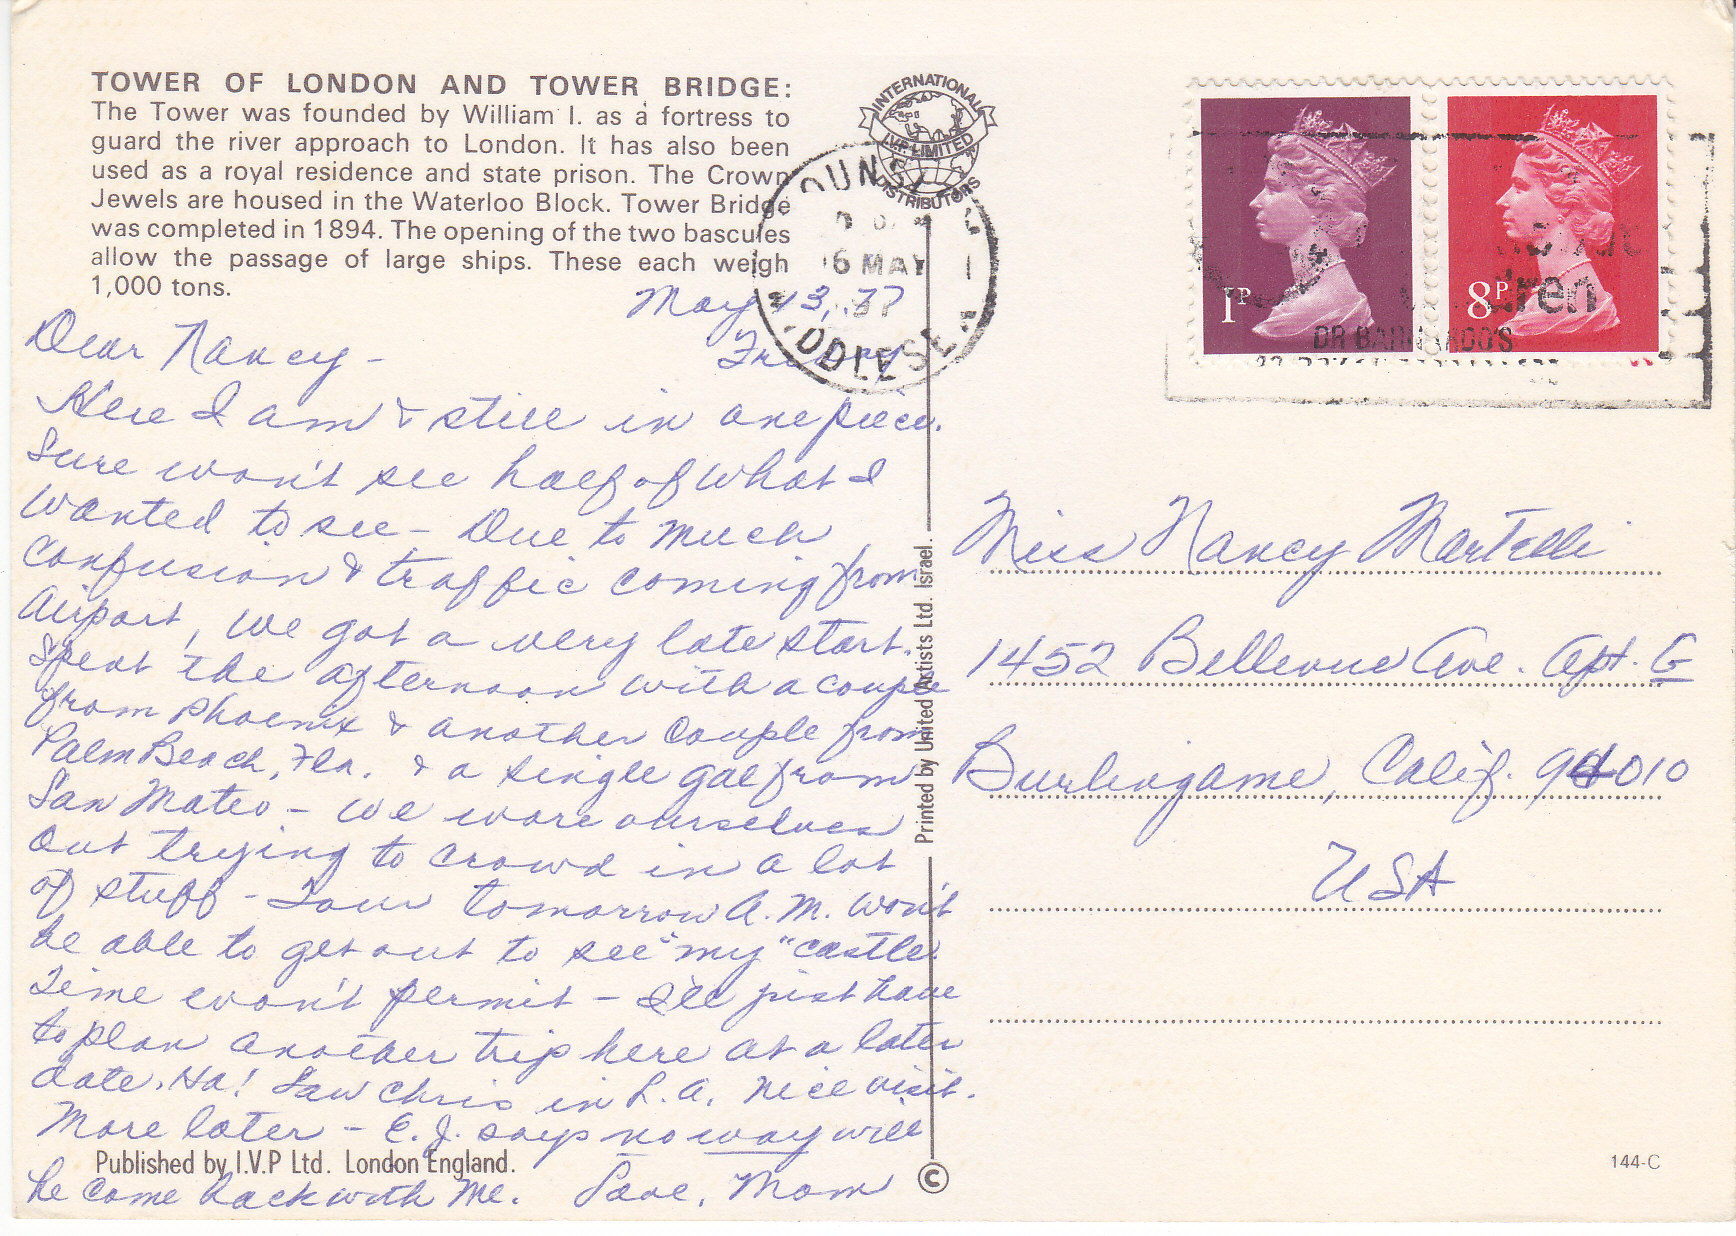 TOWER OF LONDON AND TOWER BRIDGE:
The Tower was founded by William I. as a fortress to
guard the river approach to London. It has also been
used as a royal residence and state prison. The Crown
Jewels are housed in the Waterloo Block. Tower Bridge
was completed in 1894. The opening of the two bascules
allow the passage of large ships. These each weigh
1,000 tons.
INTERNATIONAL
I.V.P. LIMITED
DISTRIBUTORS
16 MAY
1P
8P
DR BARNARDO'S
May 13, 77
Friday
Dear Nancy -
Here I am & still in one piece.
Sure won't see half of what I
wanted to see - Due to much
confusion & traffic coming from
Airport, we got a very late start.
Spent the afternoon with a couple
from Phoenix & another couple from
Palm Beach, Fla. & a single gal from
San Mateo - we wore ourselves
out trying to crowd in a lot
of stuff - Tour tomorrow A.M. Won't
be able to get out to see "my" castle.
Time won't permit - I'll just have
to plan another trip here at a later
date. Ha! Saw Chris in L.A. Nice visit.
More later - E.J. says no way will
he come back with me. Love, Mom
Published by I.V.P Ltd. London England.
Printed by United Artists Ltd. Israel.
©
Miss Nancy Martelli
1452 Bellevue Ave. Apt. G
Burlingame, Calif. 94010
USA
144-C